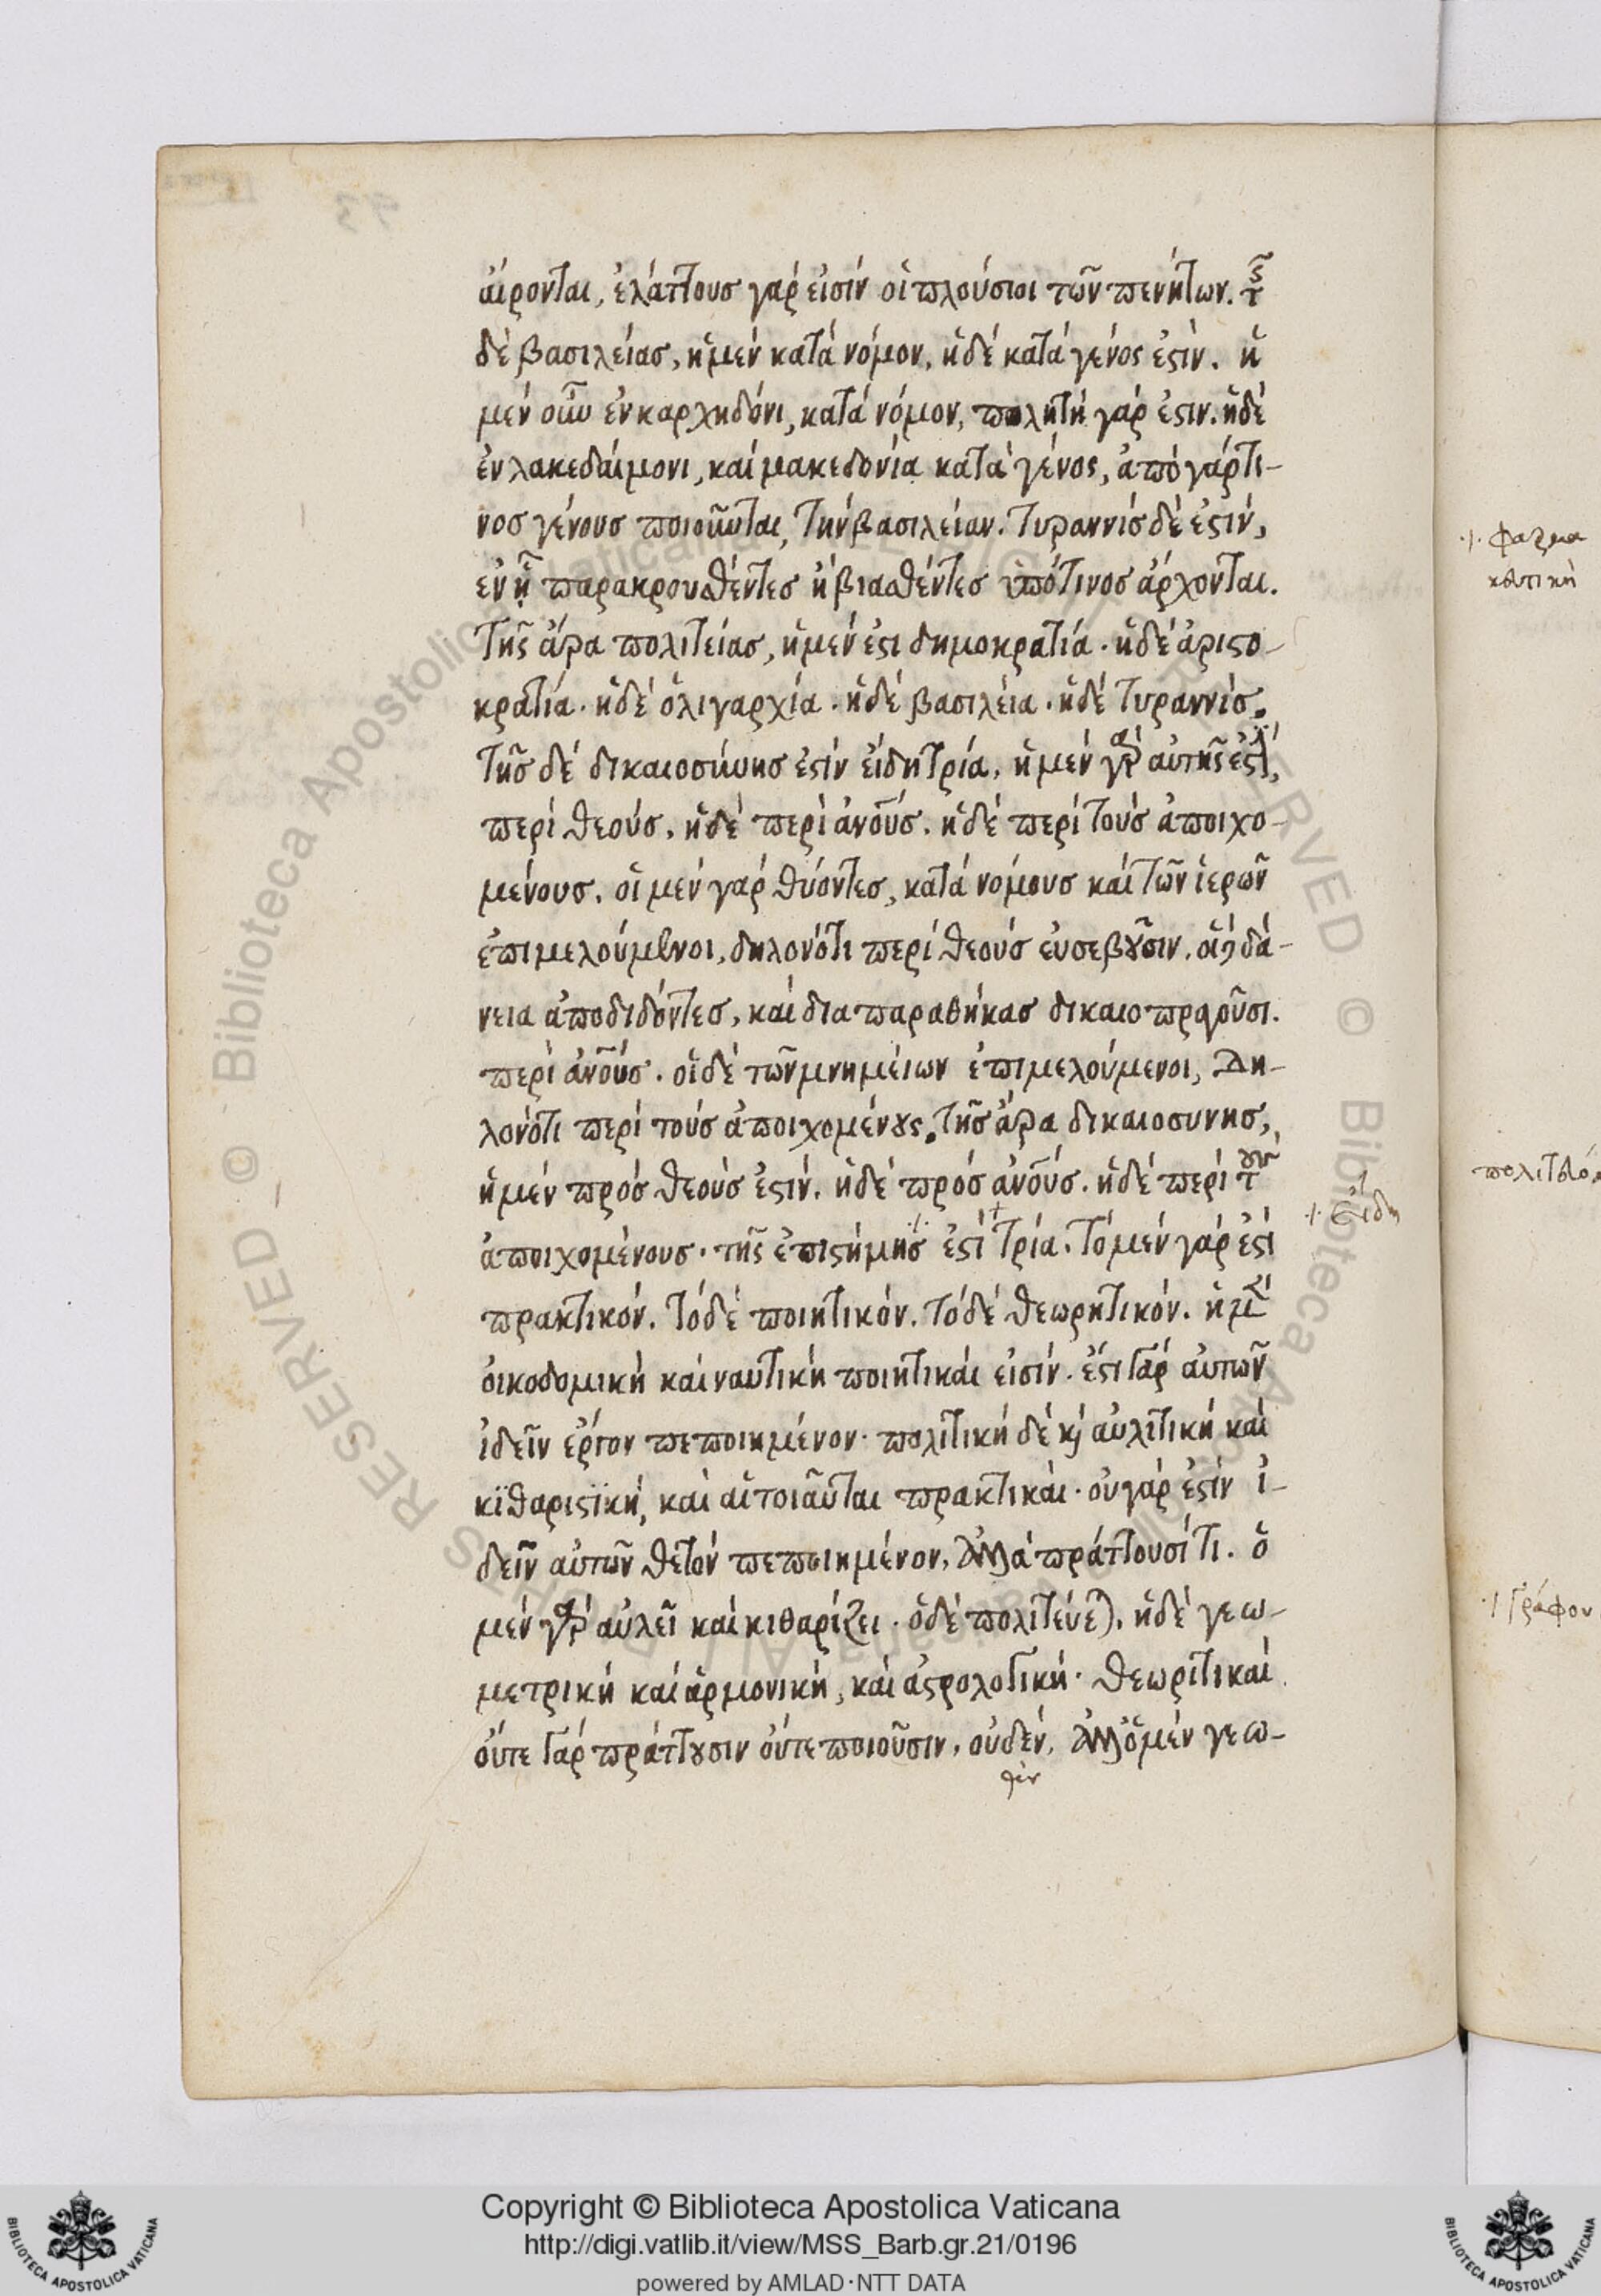 αἱροῦνται, ἐλάττους γάρ εἰσίν οἱ πλούσιοι τῶν πενήτων. τῆς
δέ βασιλείας, ἡ μέν κατά νόμον, ἡ δέ κατά γένος ἐστίν. ἡ
μέν οὖν ἐν καρχηδόνι, κατά νόμον, πολητή γάρ ἐστιν. ἡ δέ
ἐν λακεδαίμονι, καί μακεδονία κατά γένος, ἀπό γάρ τι-
νος γένους ποιοῦνται, τήν βασιλείαν. τυραννίς δέ ἐστίν,
ἐν ᾗ παρακρουσθέντες ἢ βιασθέντες ὑπό τινος ἄρχονται.
τῆς ἄρα πολιτείας, ἡ μέν ἐστι δημοκρατία. ἡ δέ ἀριστο-
κρατία. ἡ δέ ὀλιγαρχία. ἡ δέ βασιλεία. ἡ δέ τυραννίς.
τῆς δέ δικαιοσύνης ἐστίν εἴδη τρία, ἡ μέν γάρ αὐτῆς ἐστί,
περί θεούς, ἡ δέ περί ἀνούς. ἡ δέ περί τούς ἀποιχο-
μένους. οἱ μέν γάρ θύοντες, κατά νόμους καί τῶν ἱερῶν
ἐπιμελούμενοι, δηλονότι περί θεούς εὐσεβοῦσιν. οἱ δέ δά-
νεια ἀποδιδόντες, καί διαπαραθήκας δικαιοπραγοῦσι.
περί ἀνούς. οἱ δέ τῶν μνημείων ἐπιμελούμενοι, Δη-
λονότι περί τούς ἀποιχομένους. τῆς ἄρα δικαιοσυνης,
ἡ μέν πρός θεούς ἐστίν. ἡ δέ πρός ἀνούς. ἡ δέ περί τούς
·/· εἴδη
ἀποιχομένους. τῆς ἐπιστήμης ἐστί τρία. τό μέν γάρ ἐστί
πρακτικόν. τό δέ ποιητικόν. τό δέ θεωρητικόν. ἡ μέν
οἰκοδομική καί ναυτική ποιητικαί εἰσίν. ἔστι γάρ αὐτῶν
ἰδεῖν ἔργον πεποιημένον. πολιτική δέ καί αὐλιτική καί
κϊθαριστϊκή, καί αἱ τοιαῦται πρακτικαί. οὐ γάρ ἐστίν ἰ-
δεῖν αὐτῶν θετόν πεποιημένον, ἀλλά πράττουσί τι. ὁ
μέν γάρ αὐλεῖ καί κιθαρίζει. ὁ δέ πολιτεύεται, ἡ δέ γεω-
μετρική καί ἁρμονική, καί ἀστρολογική. θεωριτικαί.
οὔτε γάρ πράττουσιν οὔτε ποιοῦσιν, οὐδέν, ἀλλ' ὁ μέν γεω-
θέν
κοπτική
Copyright © Biblioteca Apostolica Vaticana
http://digi.vatlib.it/view/MSS_Barb.gr.21/0196
powered by AMLAD·NTT DATA